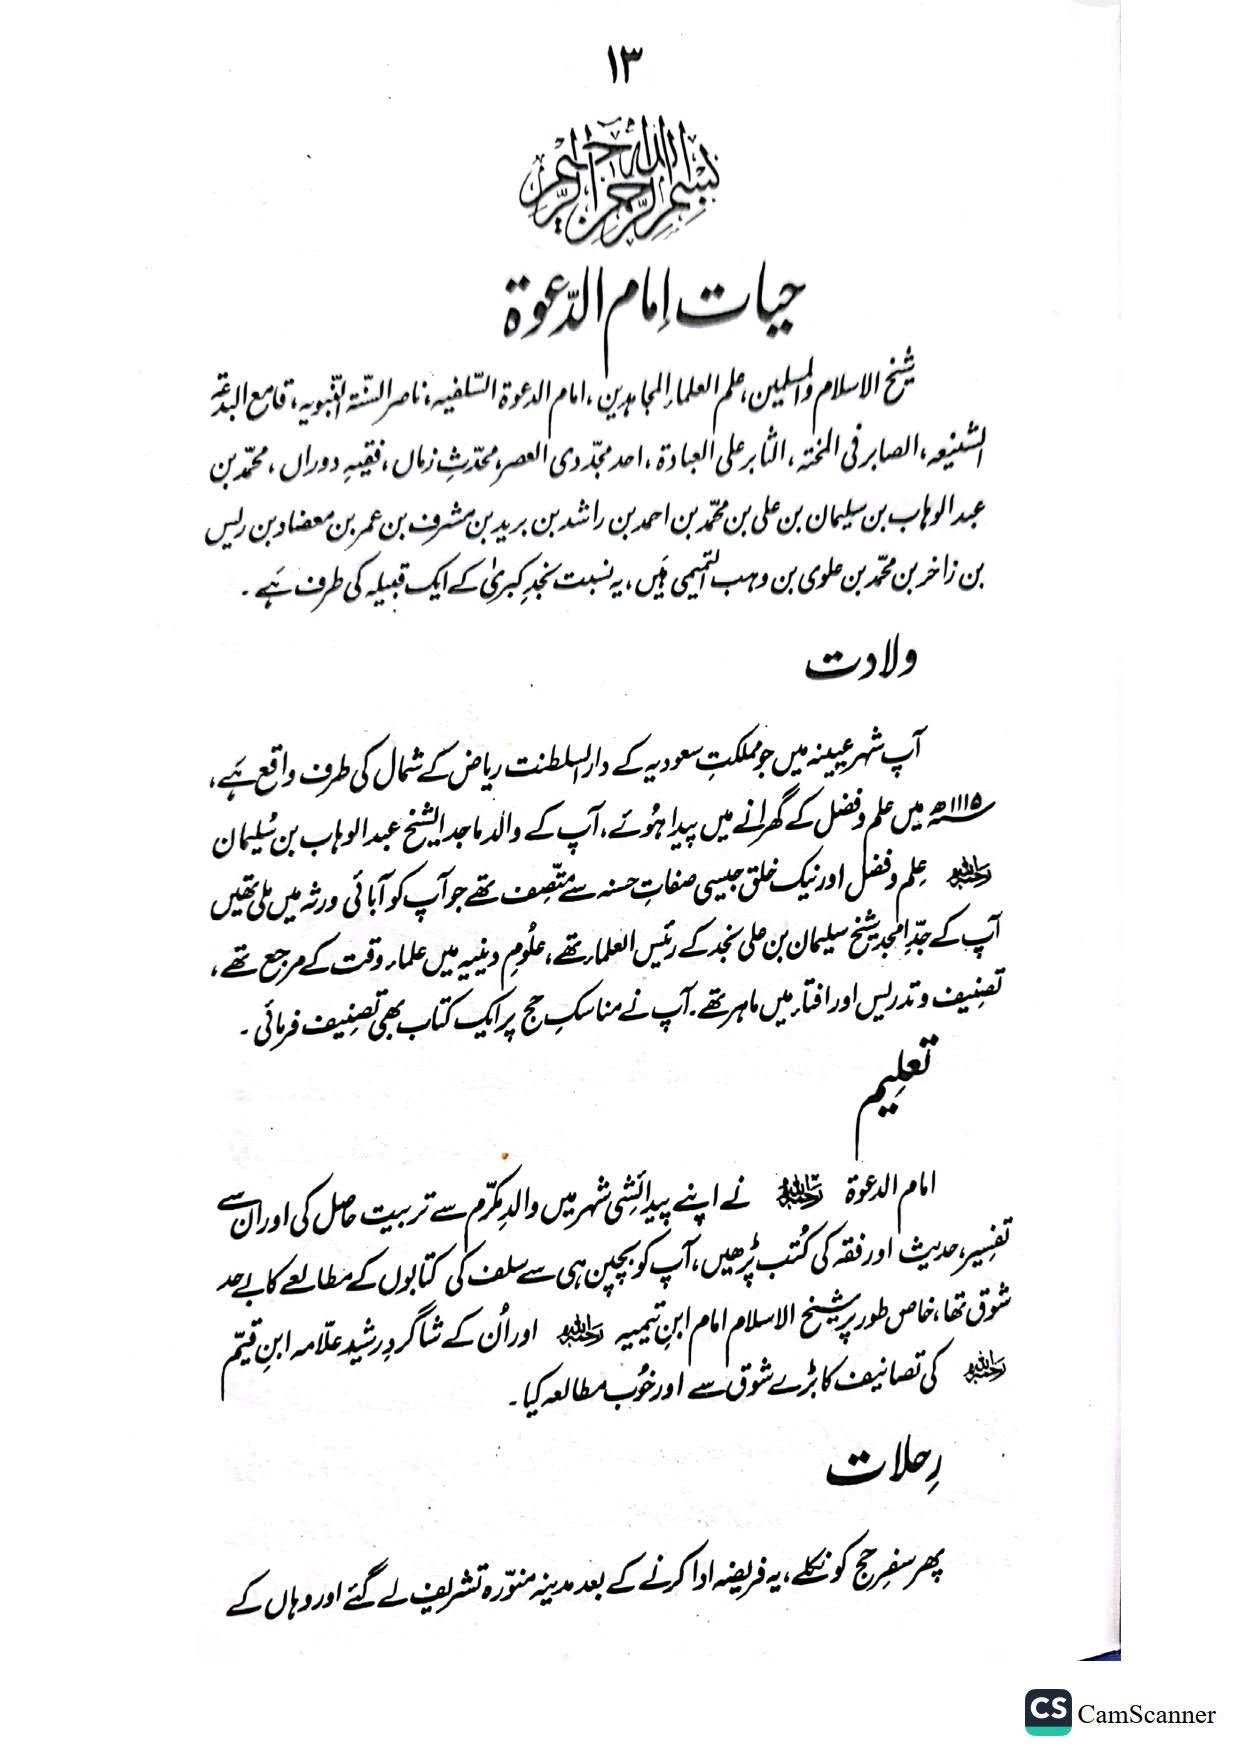 ۱۳
بسم الله الرحمن الرحيم
حیات اِمام الدّعوة
شیخ الاسلام والمسلمین، علم العلماء المجاہدین، امام الدعوة السّلفیہ، ناصر السنّة النّبویہ، قامع البدعۃ
الشنیعہ، الصابر فی المحنۃ، الثابر علی العبادة، احد مجدّدی العصر، محدّثِ زماں، فقیہِ دوراں، محمّد بن
عبد الوہاب بن سلیمان بن علی بن محمّد بن احمد بن راشد بن برید بن مشرف بن عمر بن معضاد بن ریس
بن زاخر بن محمّد بن علوی بن وہب التمیمی ہیں، یہ نسبت نجدِ کبریٰ کے ایک قبیلہ کی طرف ہے۔
ولادت
آپ شہر عیینہ میں جو مملکتِ سعودیہ کے دار السلطنت ریاض کے شمال کی طرف واقع ہے،
۱۱۱۵ھ میں علم و فضل کے گھرانے میں پیدا ہُوئے، آپ کے والد ماجد الشیخ عبد الوہاب بن سُلیمان
رحمہ اللہ عِلم و فضل اور نیک خلق جیسی صفاتِ حسنہ سے متّصف تھے جو آپ کو آبائی ورثہ میں ملی تھیں
آپ کے جدِّ امجد شیخ سلیمان بن علی نجد کے رئیس العلماء تھے، علُومِ دینیہ میں علماء وقت کے مرجع تھے،
تصنِیف و تدریس اور افتاء میں ماہر تھے۔ آپ نے مناسکِ حج پر ایک کتاب بھی تصنِیف فرمائی۔
تعلِیم
امام الدعوة رحمہ اللہ نے اپنے پیدائشِی شہر میں والدِ مکرّم سے تربیت حاصل کی اور ان سے
تفسِیر، حدیث اور فقہ کی کُتب پڑھیں، آپ کو بچپن ہی سے سلف کی کتابوں کے مطالعے کا بے حد
شوق تھا، خاص طور پر شیخ الاسلام امام ابنِ تیمیہ رحمہ اللہ اور اُن کے شاگردِ رشید علّامہ ابنِ قیّم
رحمہ اللہ کی تصانیف کا بڑے شوق سے اور خُوب مطالعہ کیا۔
رِحلات
پھر سفرِ حج کو نکلے، یہ فریضہ ادا کرنے کے بعد مدینہ منوّرہ تشریف لے گئے اور وہاں کے
CS CamScanner